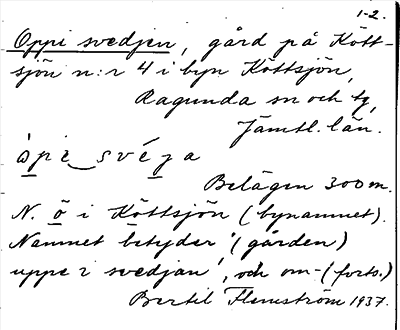 1-2.
Oppi svedjen, gård på Kött-
sjön n:r 4 i byn Köttsjön,
Ragunda sn och tg,
Jämtl. län.
òpɩ svéja
Belägen 300 m.
N. ö i Köttsjön (bynamnet).
Namnet betyder '(gården)
uppe i svedjan', och om- (forts.)
Bertil Flemström 1937.